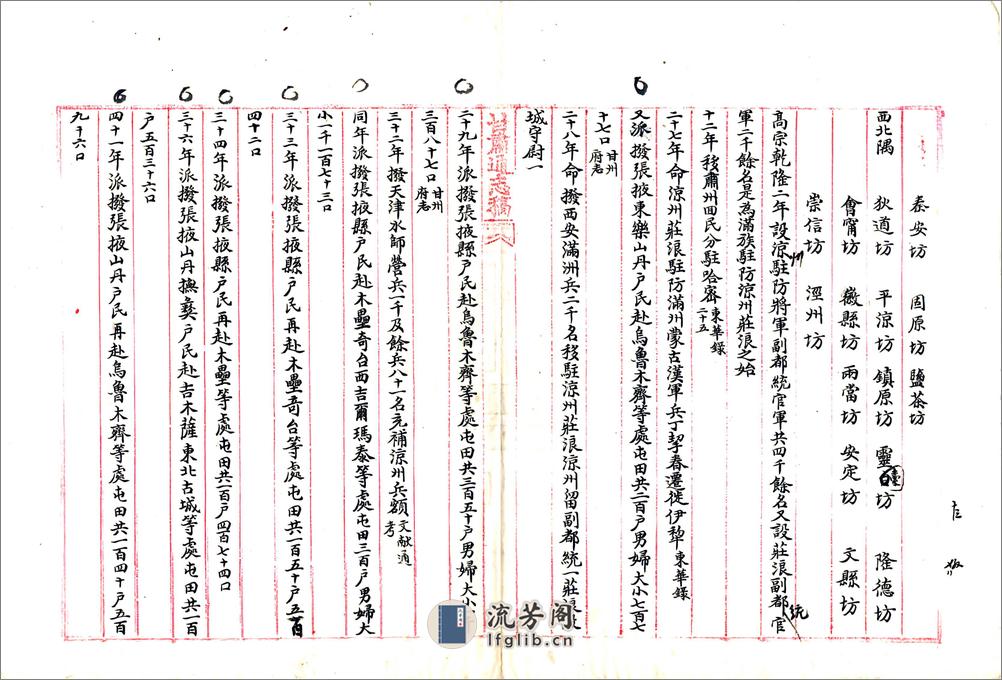 泰安坊 固原坊 鹽茶坊
西北隅 狄道坊 平涼坊 鎮原坊 靈臺坊 隆德坊
會甯坊 徽縣坊 兩當坊 安定坊 文縣坊
崇信坊 涇州坊
高宗乾隆二年設涼州駐防將軍副都統官軍共四千餘名又設莊浪副都統官
軍二千餘名是為滿族駐防涼州莊浪之始
十二年移肅州回民分駐哈密東華錄二十五
二十七年命涼州莊浪駐防滿州蒙古漢軍兵丁挈眷遷徙伊犂東華錄
又派撥張掖東樂山丹戶民赴烏魯木齊等處屯田共二百戶男婦大小七百七
十七口甘州府志
二十八年命撥西安滿洲兵二千名移駐涼州莊浪涼州留副都統一莊浪
城守尉一
甘肅通志稿
二十九年派撥張掖縣戶民赴烏魯木齊等處屯田共三百五十戶男婦大小
三百八十七口甘州府志
三十二年撥天津水師營兵一千及餘兵八十一名充補涼州兵額文献通考
同年派撥張掖縣戶民赴木壘奇台西吉爾瑪泰等處屯田三百戶男婦大
小一千一百七十三口
三十三年派撥張掖縣戶民再赴木壘奇台等處屯田共一百五十戶五百
四十二口
三十四年派撥張掖縣戶民再赴木壘等處屯田共一百戶四百七十四口
三十六年派撥張掖山丹撫彝戶民赴吉木薩東北古城等處屯田共一百
戶五百三十六口
四十一年派撥張掖山丹戶民再赴烏魯木齊等處屯田共一百四十戶五百
九十六口
流芳阁
lfglib.cn